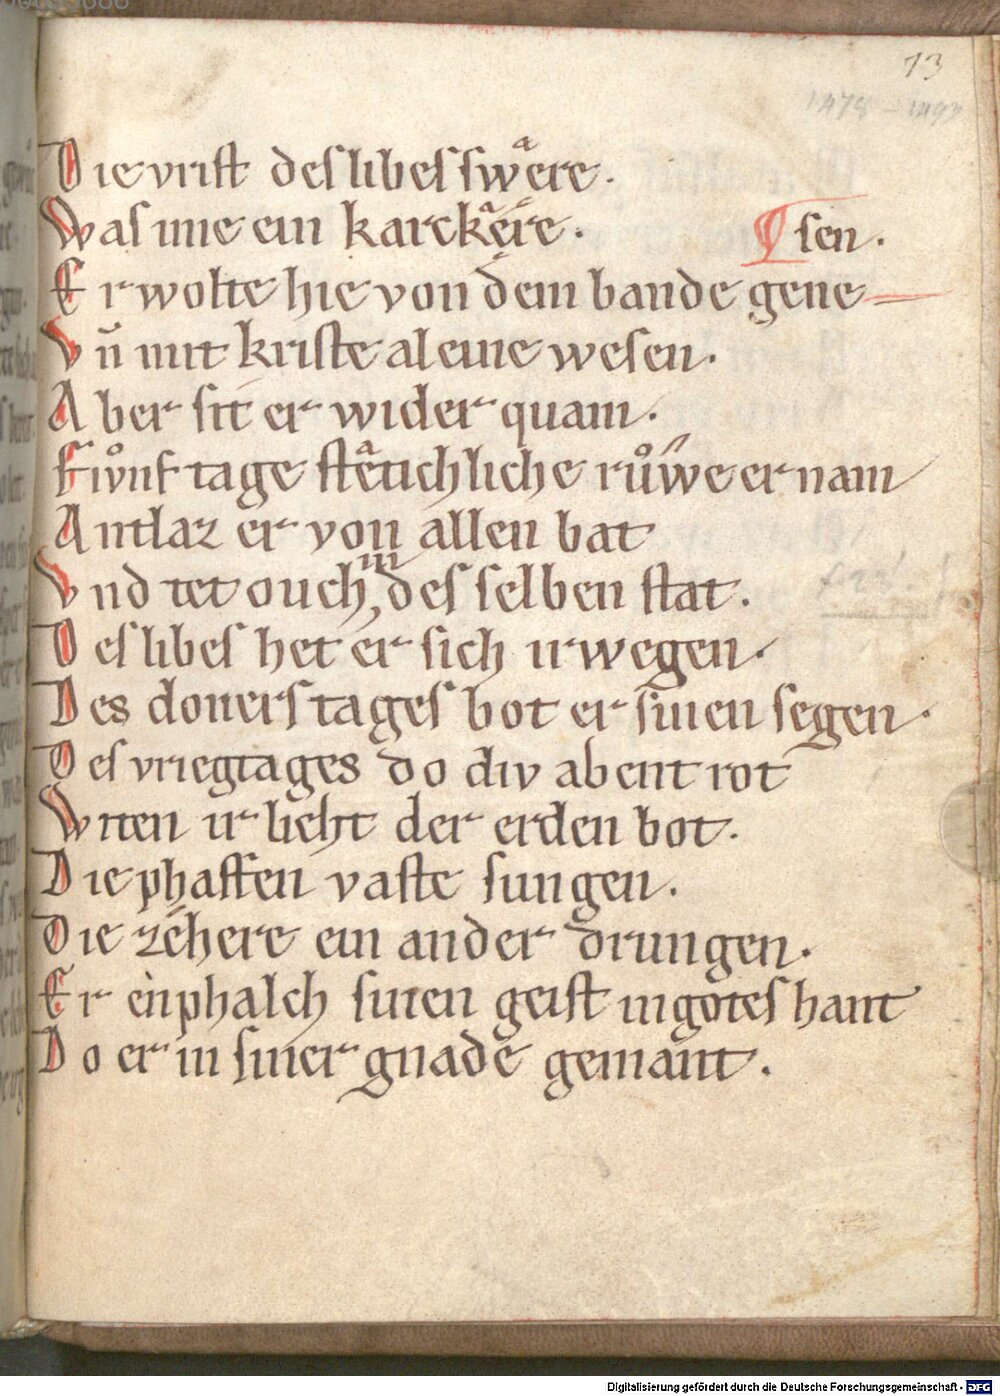 73
1478 – 1493
Die vrist des libes swͣere.
Was ime ein karckͣere.
¶ sen.
Er wolte hie von dem bande gene
Vn̄ mit kriste aleine wesen.
Aber sit er wider quam.
Fivͦnf tage stͣetichliche rvͦwe er nam
Antlaz er von allen bat
Vnd tet ouch in des selben stat.
Des libes het er sich irwegen.
Des donerstages bot er sinen segen.
Des vriegtages do div abent rot
Wrten ir lieht der erden bot.
Die phaffen vaste sungen.
Die zêhere ein ander drungen.
Er enphalch sinen geist in gotes hant
Do er in siner gnade gemant.
Digitalisierung gefördert durch die Deutsche Forschungsgemeinschaft - DFG